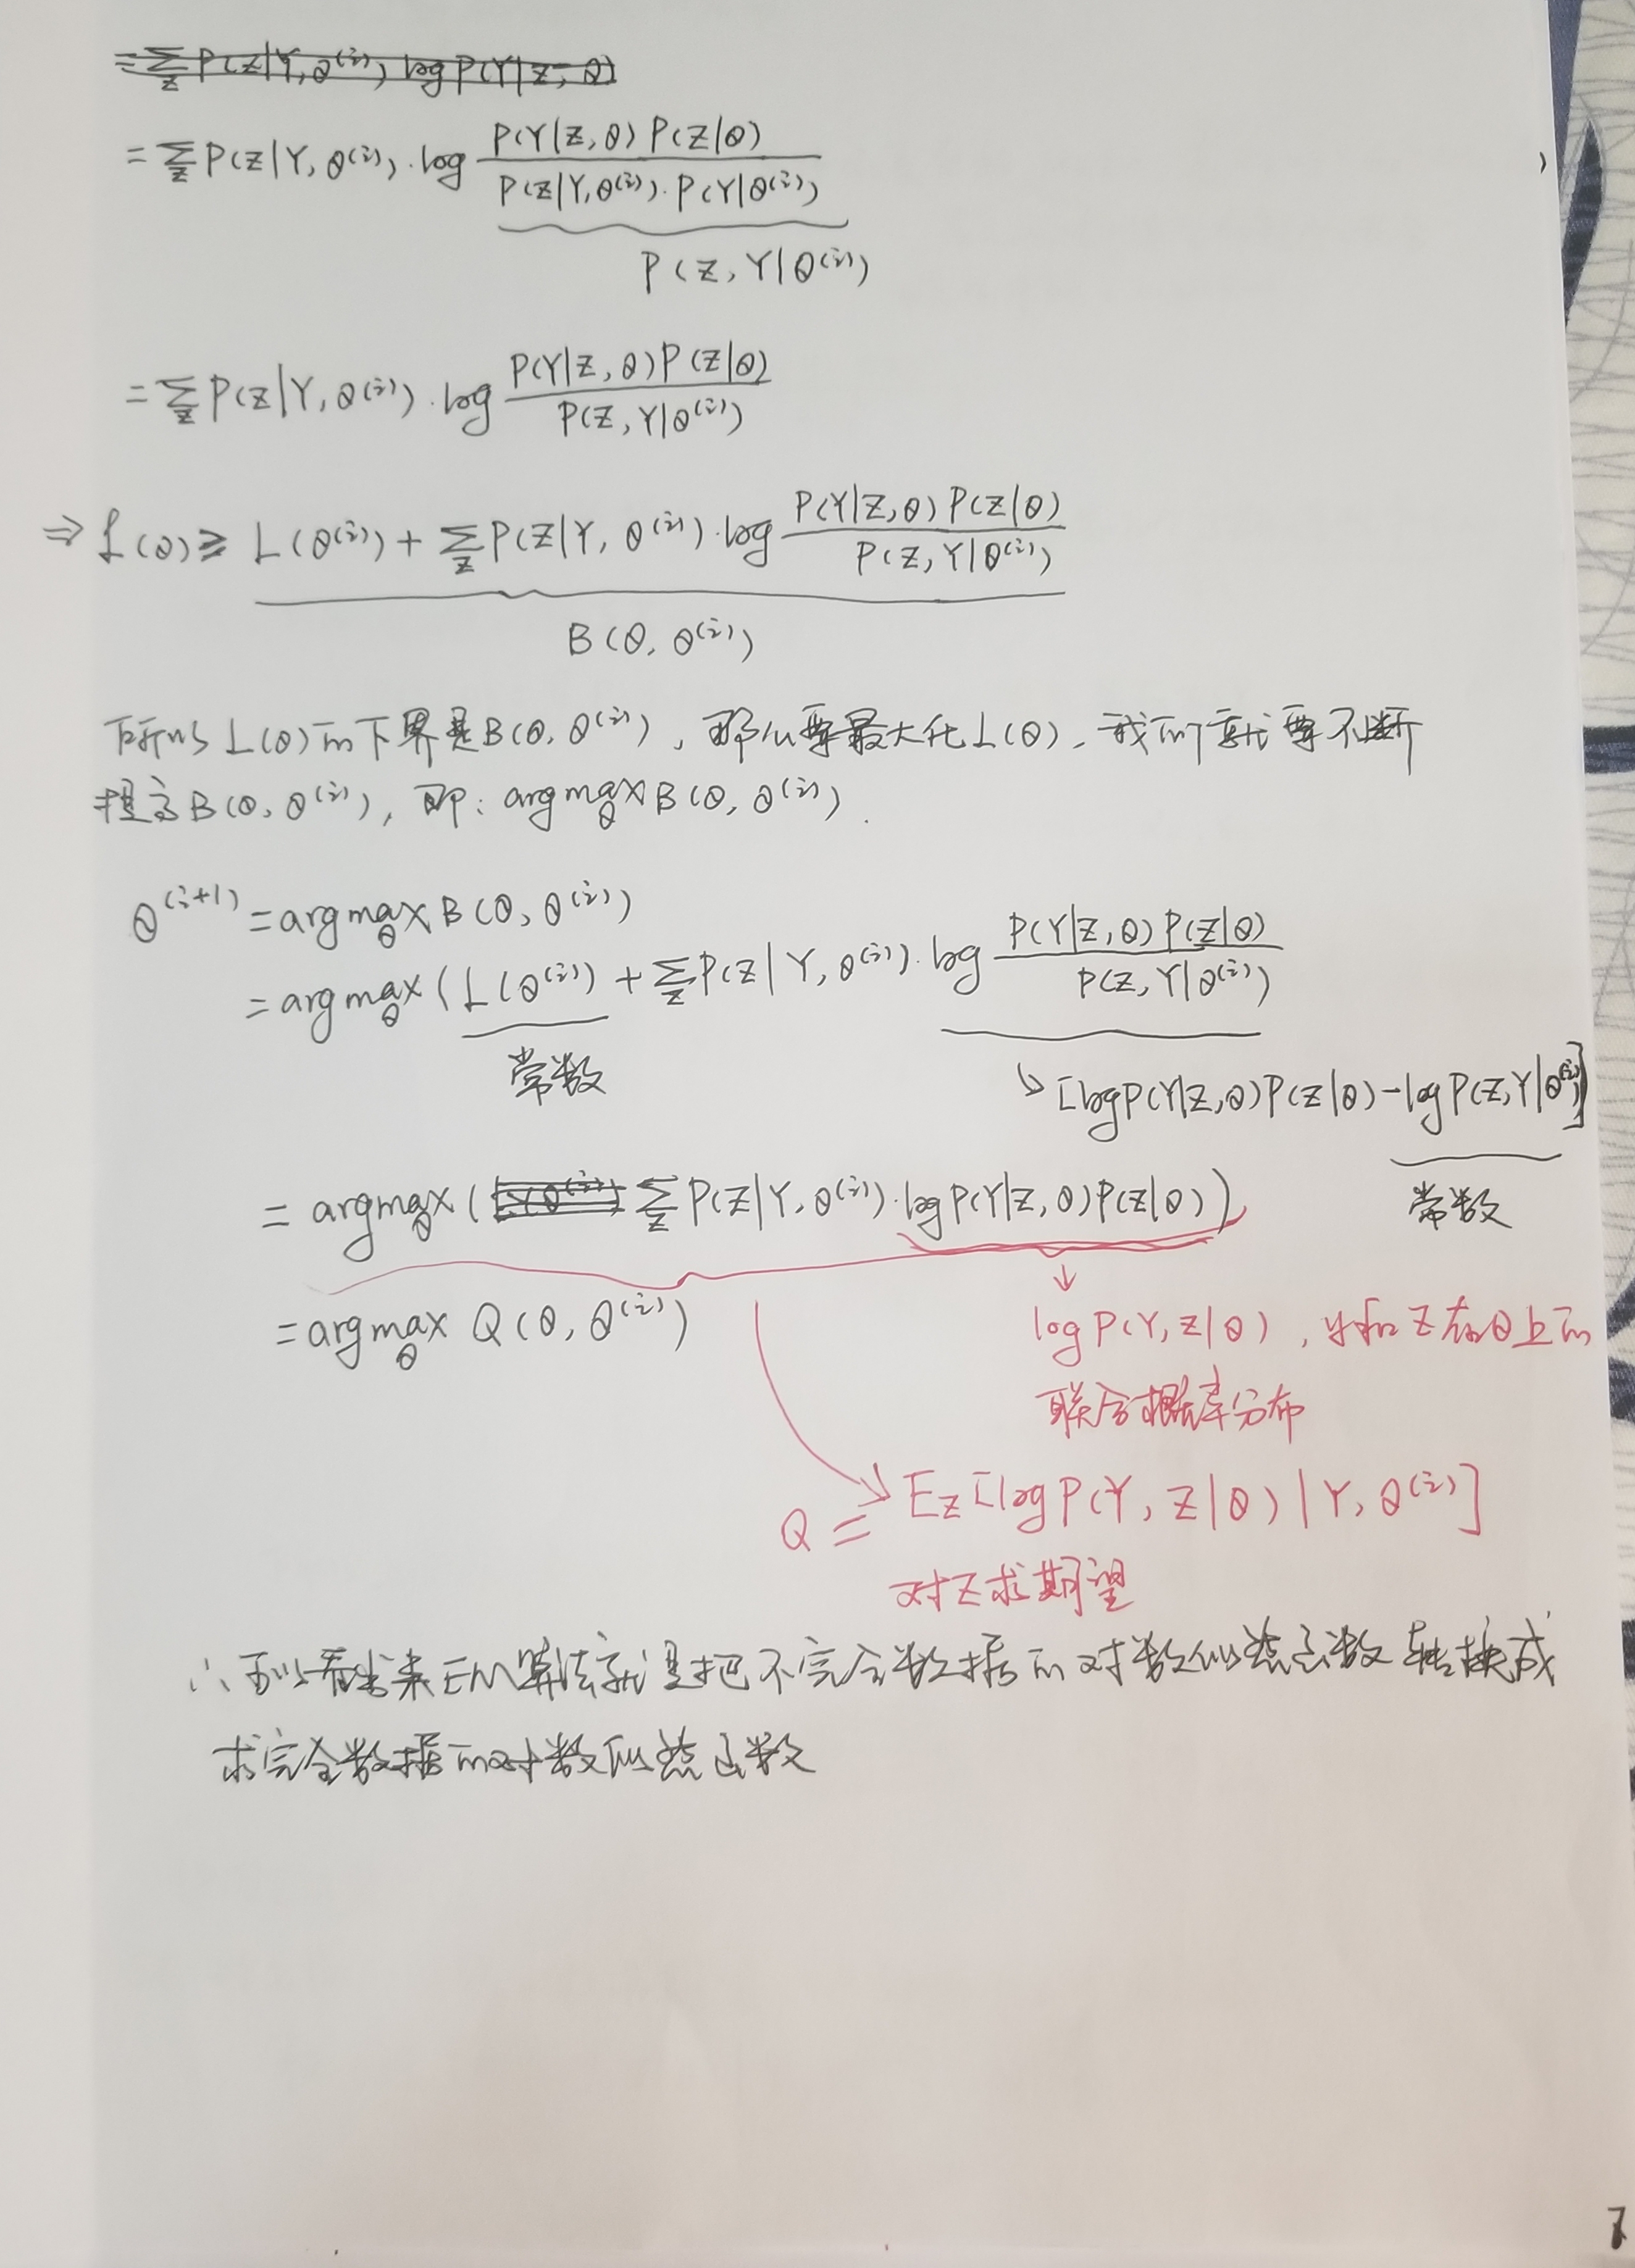 = Σ_z P(Z|Y,θ^(i)) · log P(Y|Z,θ)P(Z|θ) / P(Z|Y,θ^(i))·P(Y|θ^(i))
P(Z,Y|θ^(i))
= Σ_z P(Z|Y,θ^(i)) · log P(Y|Z,θ)P(Z|θ) / P(Z,Y|θ^(i))
⇒ L(θ) ≥ L(θ^(i)) + Σ_z P(Z|Y,θ^(i)) · log P(Y|Z,θ)P(Z|θ) / P(Z,Y|θ^(i))
B(θ,θ^(i))
所以L(θ)的下界是B(θ,θ^(i)),那么要最大化L(θ),我们就要不断
提高B(θ,θ^(i)),即: argmax_θ B(θ,θ^(i)).
θ^(i+1) = argmax_θ B(θ,θ^(i))
= argmax_θ (L(θ^(i)) + Σ_z P(Z|Y,θ^(i)) · log P(Y|Z,θ)P(Z|θ) / P(Z,Y|θ^(i))
常数
↳ [logP(Y|Z,θ)P(Z|θ) - logP(Z,Y|θ^(i))]
常数
= argmax_θ (Σ_z P(Z|Y,θ^(i)) · logP(Y|Z,θ)P(Z|θ))
= argmax_θ Q(θ,θ^(i))
↓
log P(Y,Z|θ),y和Z在θ上的
联合概率分布
Q = E_Z[logP(Y,Z|θ)|Y,θ^(i)]
对Z求期望
∴可以看出来EM算法就是把不完全数据的对数似然函数转换成
求完全数据的对数似然函数
7